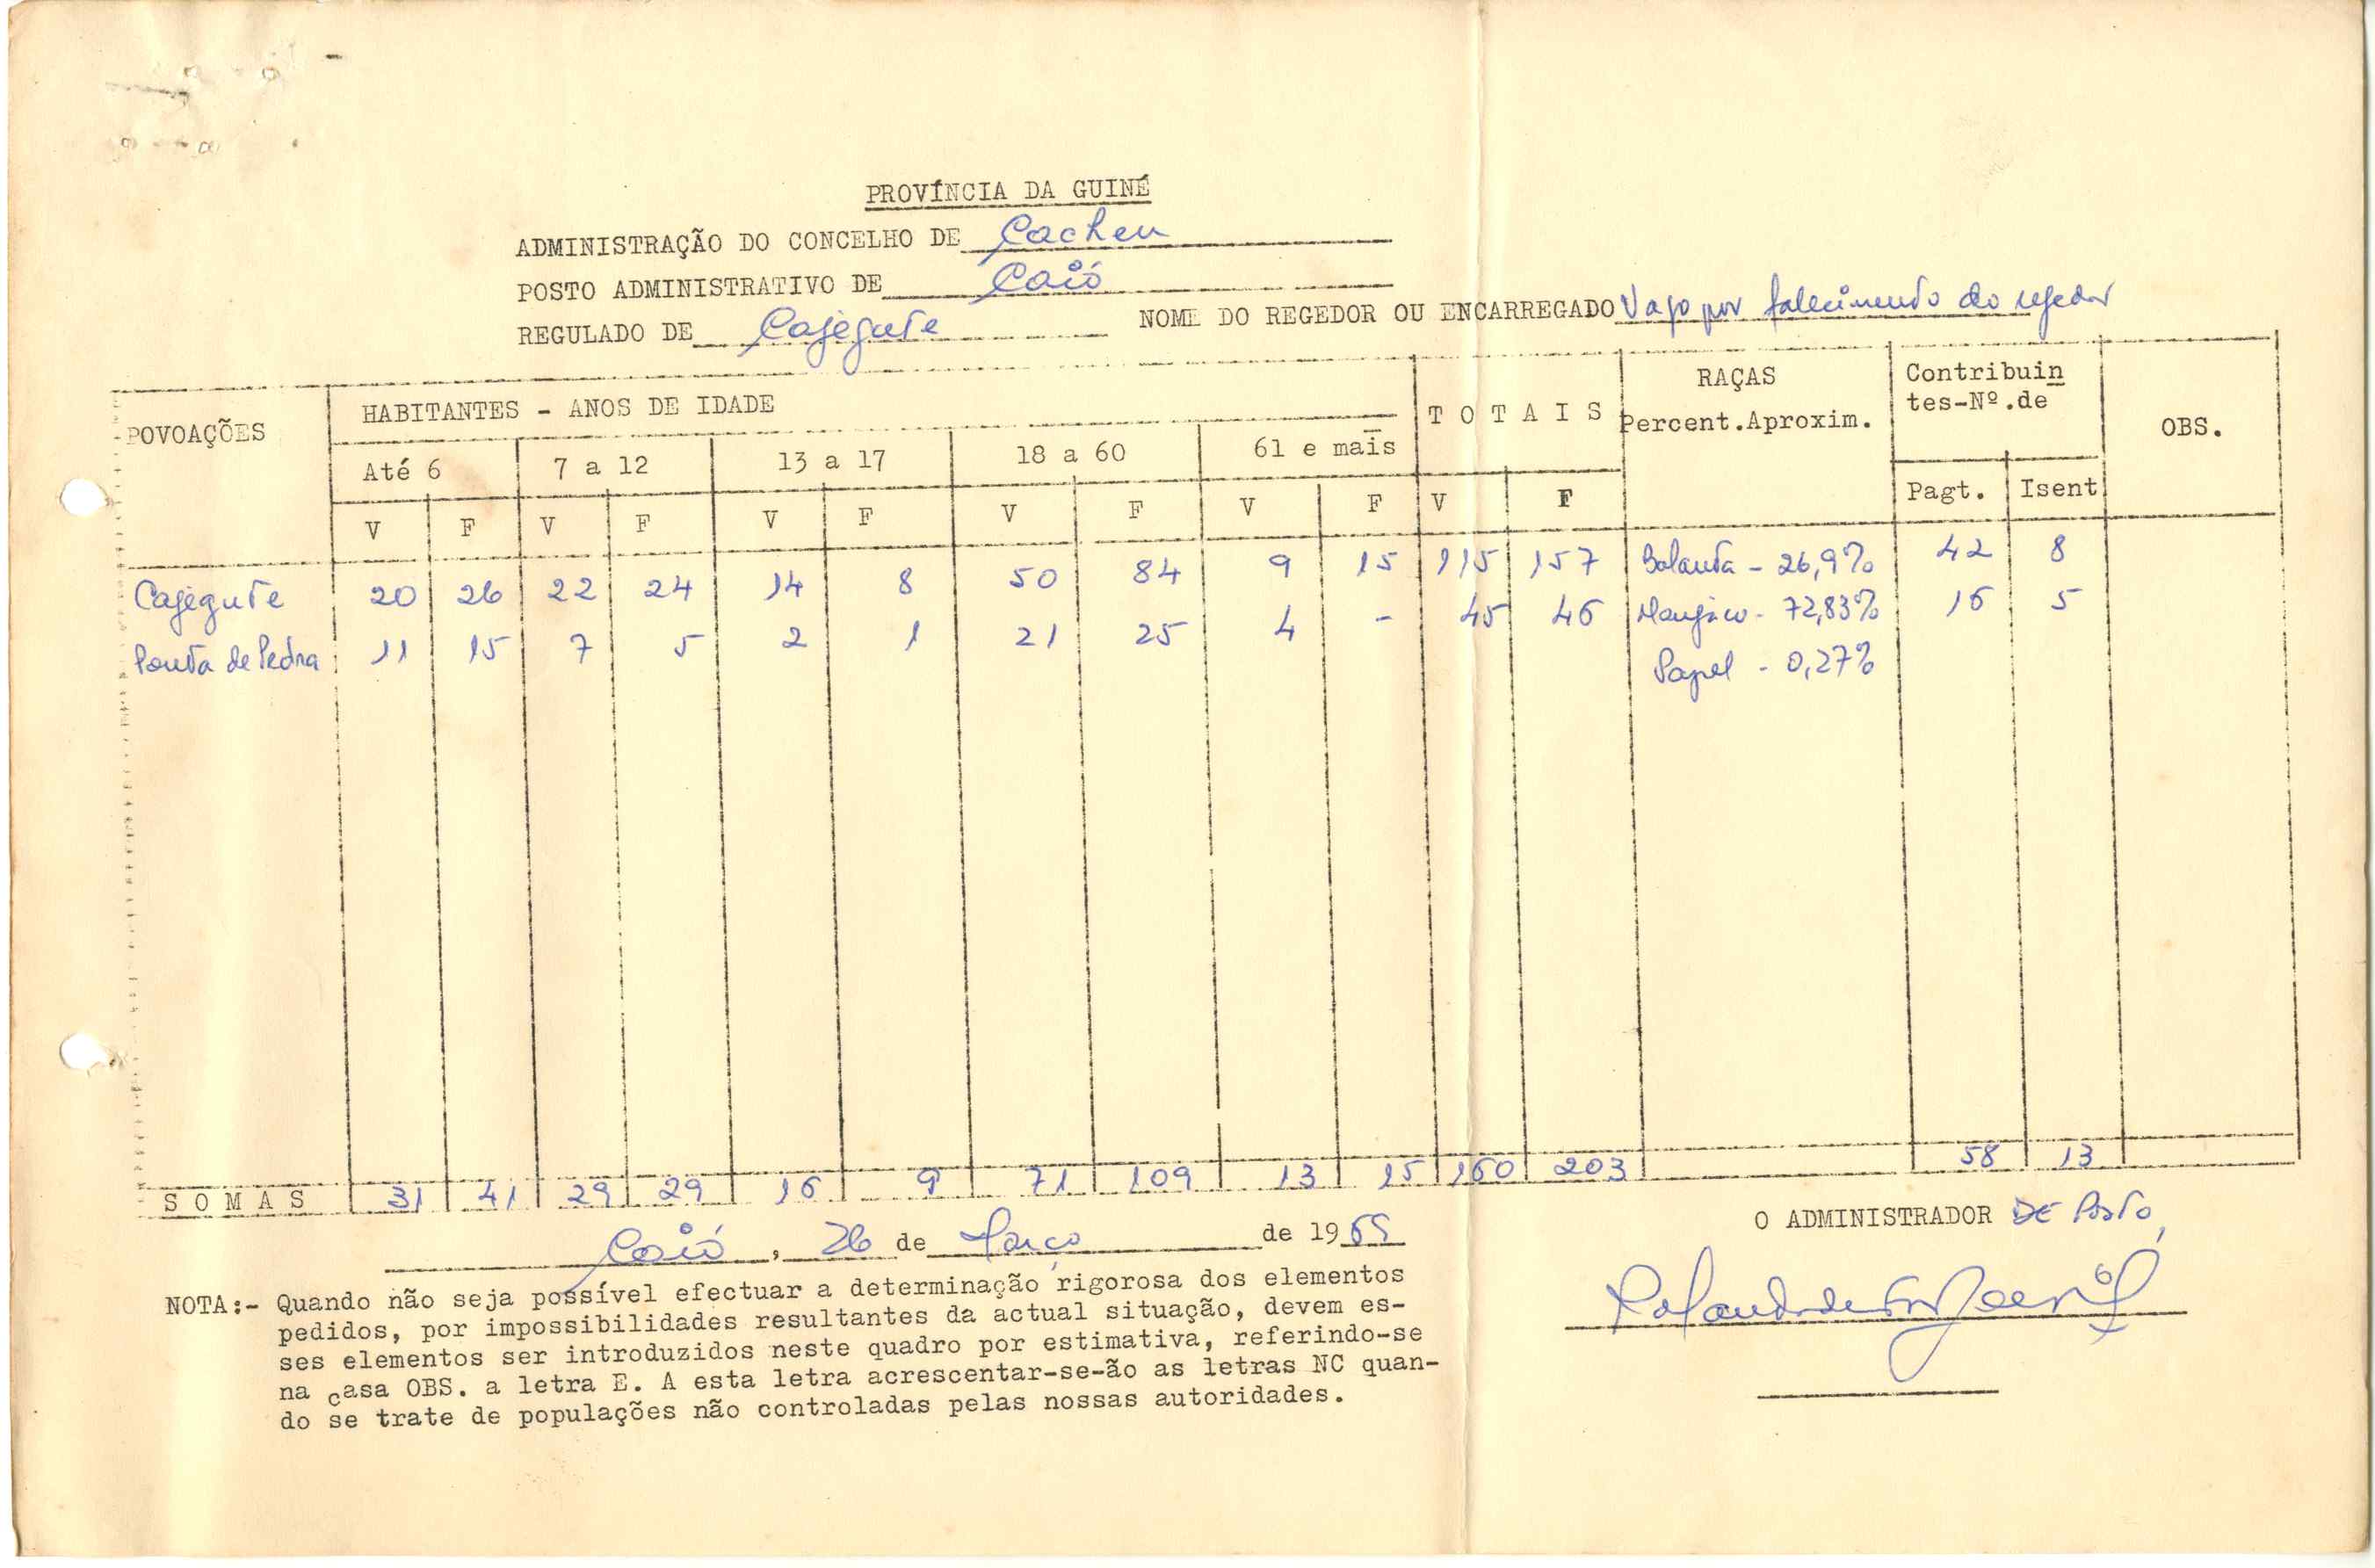 PROVÍNCIA DA GUINÉ
ADMINISTRAÇÃO DO CONCELHO DE Cacheu
POSTO ADMINISTRATIVO DE Caió
REGULADO DE Cajegute NOME DO REGEDOR OU ENCARREGADO Vago por falecimento do regedor
POVOAÇÕES HABITANTES - ANOS DE IDADE T O T A I S RAÇAS Percent.Aproxim. Contribuin tes-Nº.de OBS.
Até 6 7 a 12 13 a 17 18 a 60 61 e mais Pagt. Isent
V F V F V F V F V F V F
Cajegute 20 26 22 24 14 8 50 84 9 15 115 157 Balanta - 26,9% 42 8
Ponta de Pedra 11 15 7 5 2 1 21 25 4 - 45 46 Manjaco - 72,83% 16 5
Papel - 0,27%
S O M A S 31 41 29 29 16 9 71 109 13 15 160 203 58 13
Caió, 26 de Março de 1969
O ADMINISTRADOR DE Posto,
NOTA:- Quando não seja possível efectuar a determinação rigorosa dos elementos
pedidos, por impossibilidades resultantes da actual situação, devem es-
ses elementos ser introduzidos neste quadro por estimativa, referindo-se
na casa OBS. a letra E. A esta letra acrescentar-se-ão as letras NC quan-
do se trate de populações não controladas pelas nossas autoridades.